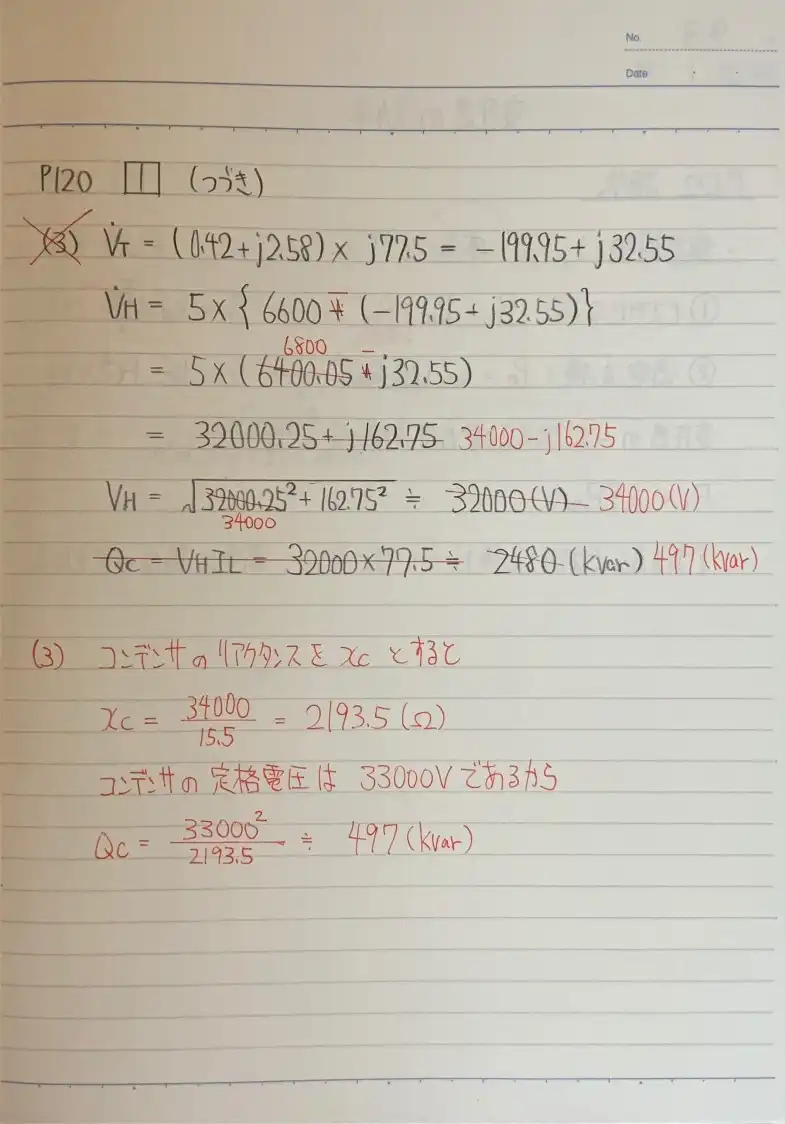 No.
Date
P120 1 (つづき)
(3) V̇T = (0.42+j2.58)× j77.5 = −199.95+j32.55
V̇H = 5×{6600 − (−199.95+j32.55)}
6800 −
= 5×(6400.05 + j32.55)
= 32000.25+j162.75 34000−j162.75
VH = √32000.25²+162.75² ≒ 32000(V) 34000(V)
34000
Qc = VHIL = 32000×77.5 ≒ 2480(kvar) 497(kvar)
(3) コンデンサのリアクタンスを xc とすると
xc = 34000/15.5 = 2193.5(Ω)
コンデンサの定格電圧は 33000Vであるから
Qc = 33000²/2193.5 ≒ 497(kvar)